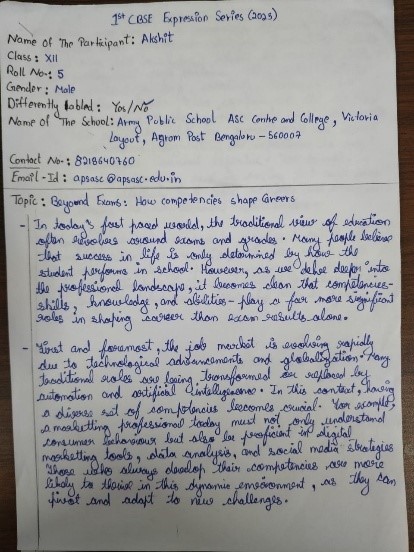 1st CBSE Expression Series (2023)
Name of The Participant: Akshit
Class: XII
Roll No.: 5
Gender: Male
Differently abled: Yes/No
Name of The School: Army Public School ASC Centre and College, Victoria
Layout, Agram Post Bengaluru - 560007
Contact No.: 8218640760
Email-Id: apsasc@apsasc.edu.in
Topic: Beyond Exams: How competencies shape Careers
- In today's fast paced world, the traditional view of education
often revolves around exams and grades. Many people believe
that success in life is only determined by how the
student performs in school. However, as we delve deeper into
the professional landscape, it becomes clean that competencies-
skills, knowledge, and abilities - play a far more significant
roles in shaping career than exam results alone.
- First and foremost, the job market is evolving rapidly
due to technological advancements and globalization. Many
traditional roles are being transformed or replaced by
automation and artificial intelligence. In this context, having
a diverse set of competencies becomes crucial. For example,
a marketting professional today must not only understand
consumer behaviour but also be proficient in digital
marketing tools, data analysis, and social media strategies
Those who always develop their competencies are more
likely to thrive in this dynamic environment, as they can
pivot and adapt to new challenges.